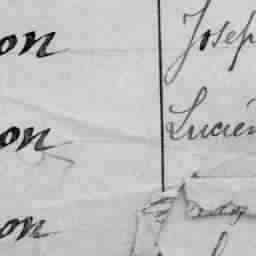 on Josep
on Lucién
on